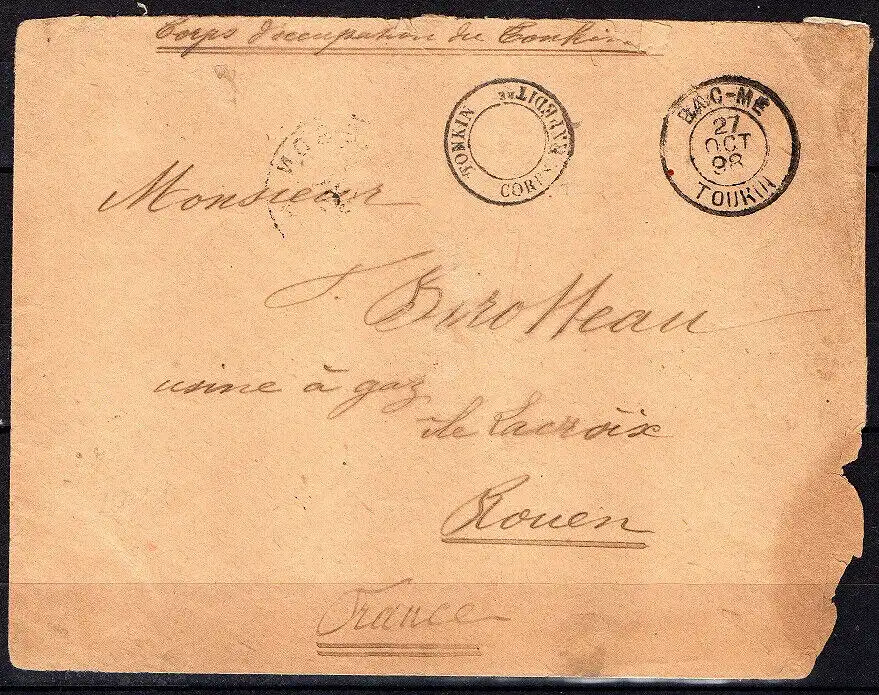 Corps d'occupation du Tonkin
TONKIN CORPS EXPEDIT RE
BAC-ME
27
OCT
98
TONKIN
Monsieur
Burotteau
usine à gaz
ile Lacroix
Rouen
France